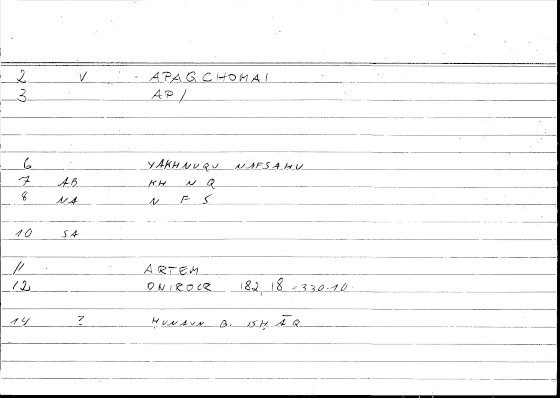 2 V APAGCHOMAI
3 AP/
6 YAKHNUQU NAFSAHU
7 AB KH N Q
8 NA N F S
10 SA
11 ARTEM
12 ONIROCR 182, 18 - 330.10
14 ? ḤUNAYN B. ISḤĀQ